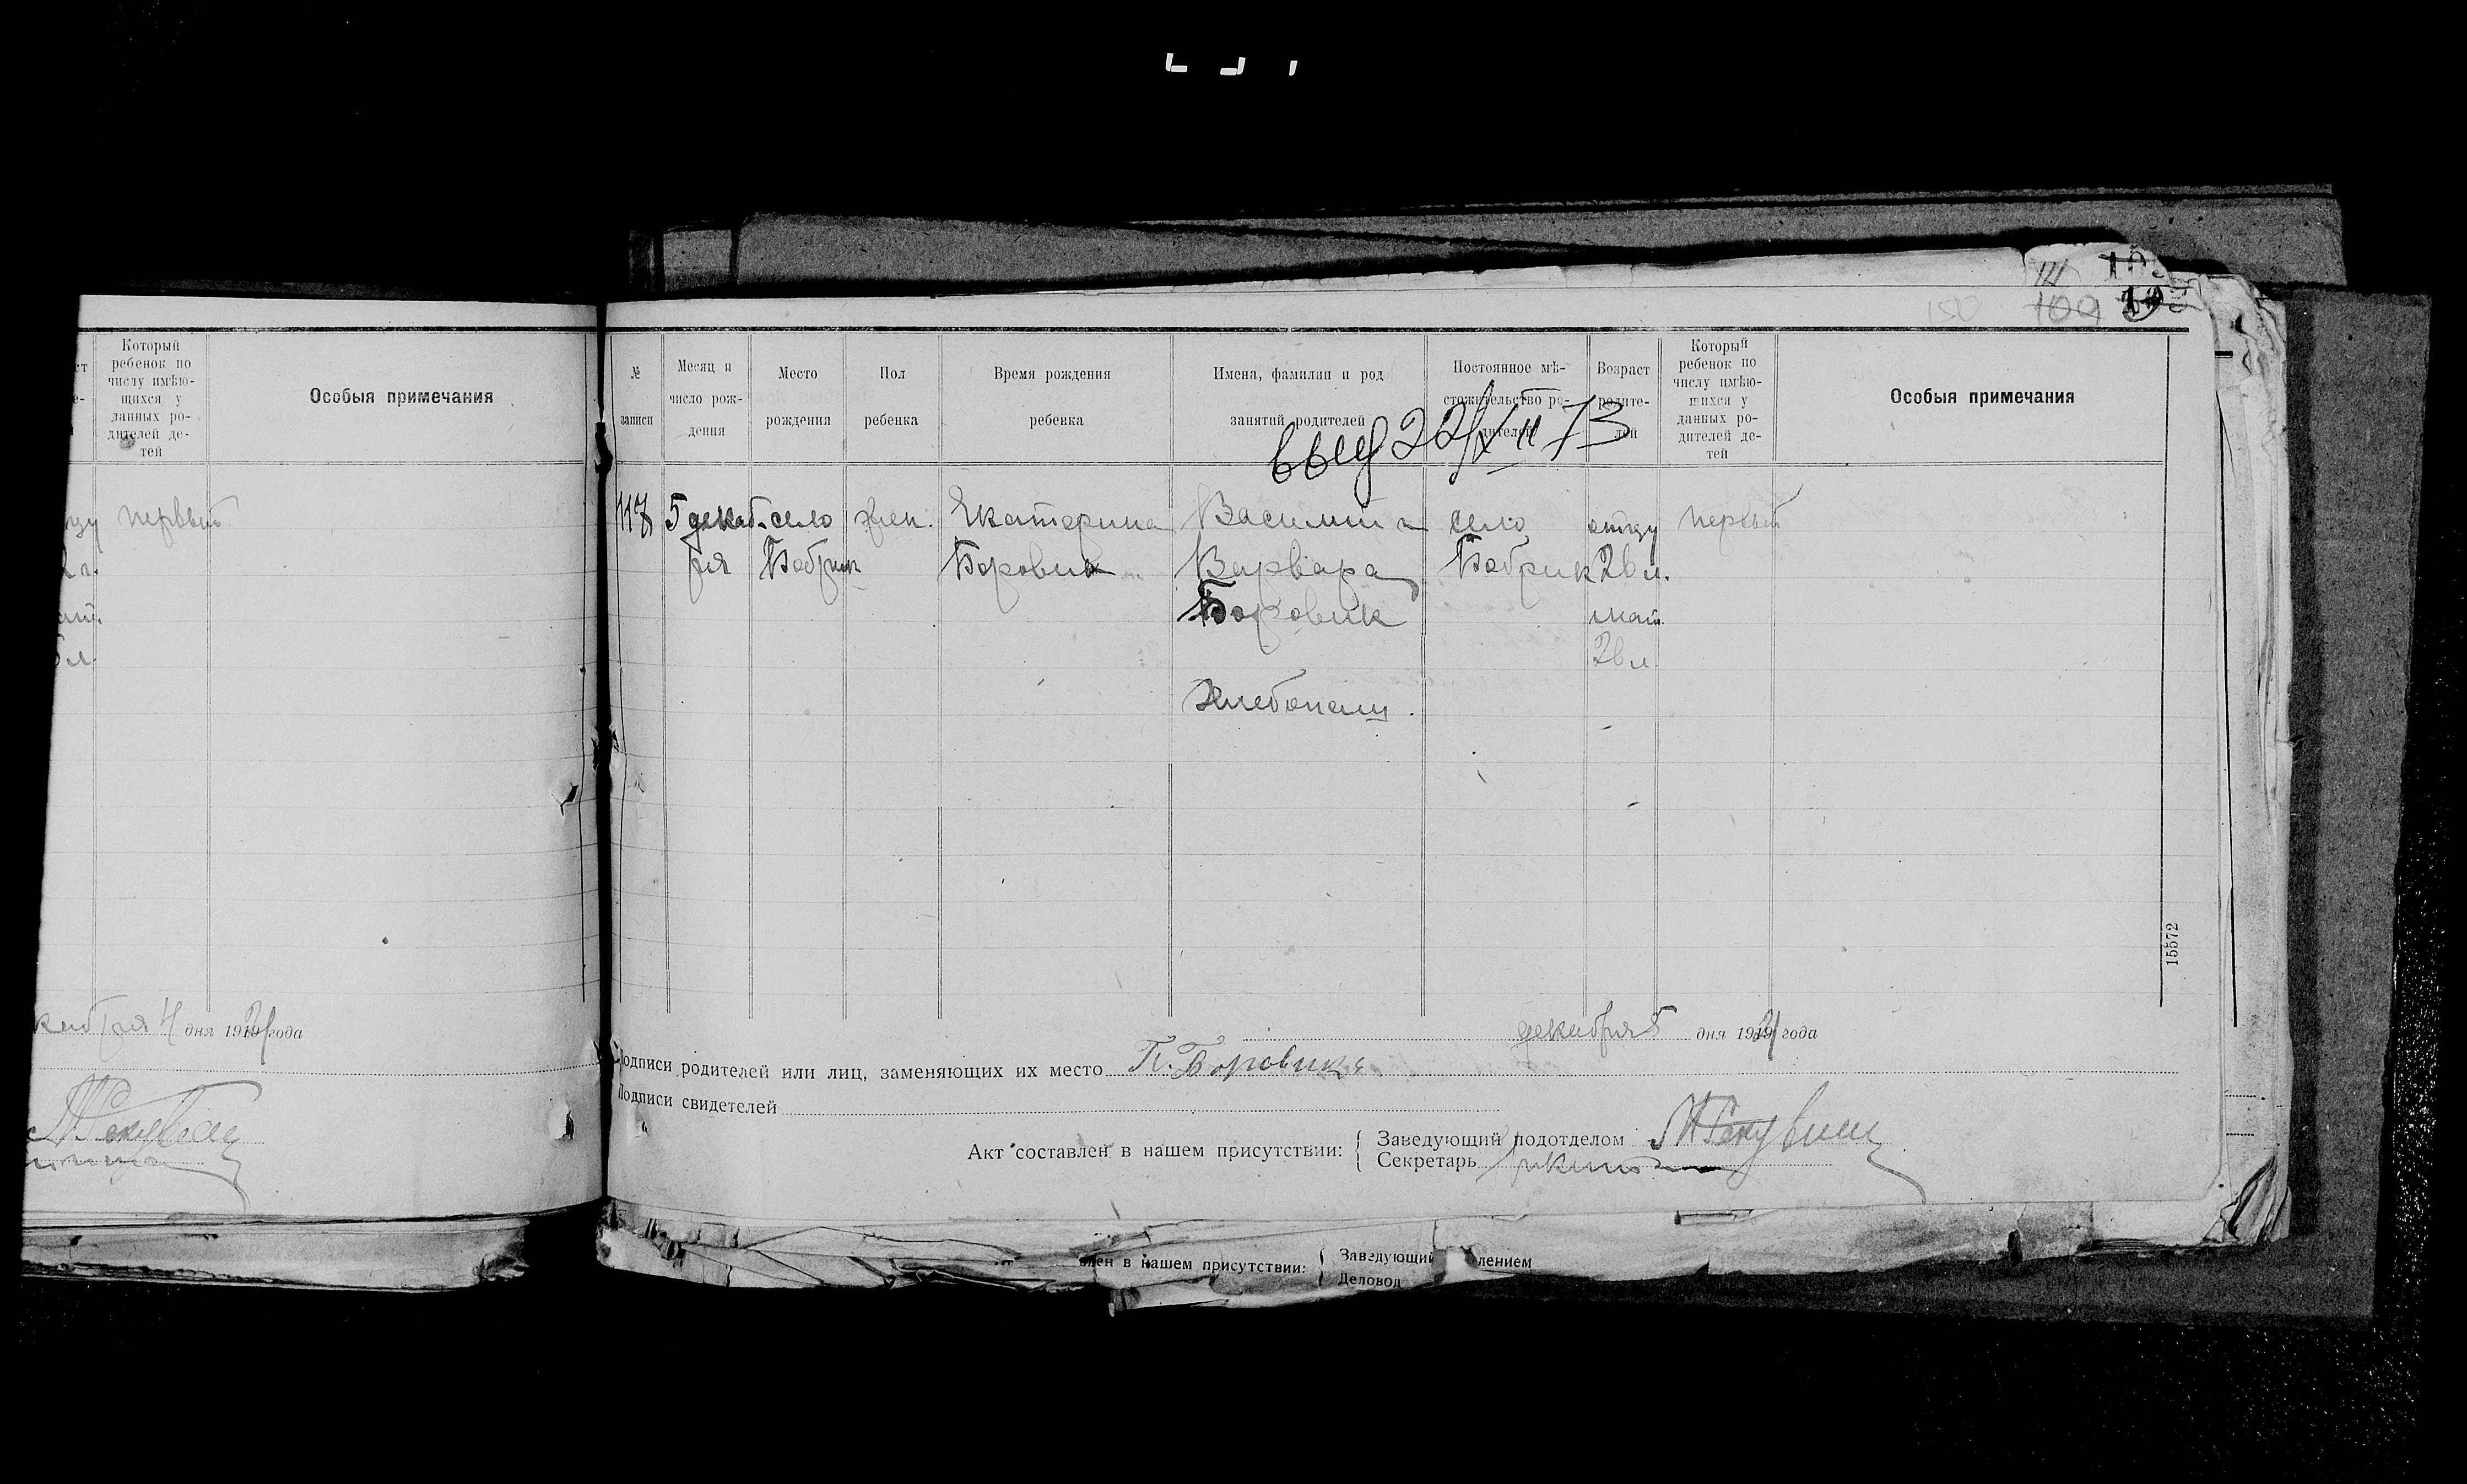 Который
ребенок по
числу имѣю-
щихся у
данных ро-
дителей де-
тей
Особыя примечания
первый
2 г.
дня 1921 года
150 109
№
записи
Месяц и
число рож-
дения
Место
рождения
Пол
ребенка
Время рождения
ребенка
Имена, фамилии и род
занятий родителей
Постоянное мѣ-
стожительство ро-
дителей
Возраст
родите-
лей
Который
ребенок по
числу имѣю-
щихся у
данных ро-
дителей де-
тей
Особыя примечания
22/XII 73
117 5 декаб. село жен. Екатерина Василий и село отцу первый
ря Бобрик Боровик Варвара Бобрик 26 л.
Боровик мат.
26 л.
Хлебопашц.
15572
декабря 5 дня 1921 года
Подписи родителей или лиц, заменяющих их место П. Боровик
Подписи свидетелей
Акт составлен в нашем присутствии: { Заведующий подотделом
Секретарь
влен в нашем присутствии: { Заведующий лением
Деловод